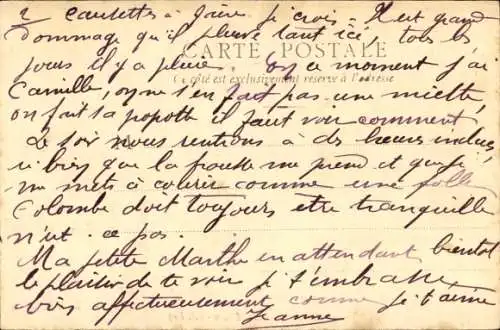 2 causettes à faire je crois. Il est grand
dommage qu'il pleuve tant ici, tous les
CARTE POSTALE
jours il y a pleuvie. En ce moment j'ai
Ce côté est exclusivement réservé à l'adresse
Camille, on ne s'en fait pas une miette,
on fait la popotte il faut voir comment,
Le soir nous rentrons à des heures indues,
si bien que la frousse me prend et que je
me mets à courir comme une folle
Colombe doit toujours etre tranquille
n'est-ce pas.
Ma petite Marthe en attendant bientôt
le plaisir de te voir je t'embrasse
bien affectueusement comme je t'aime
Jeanne